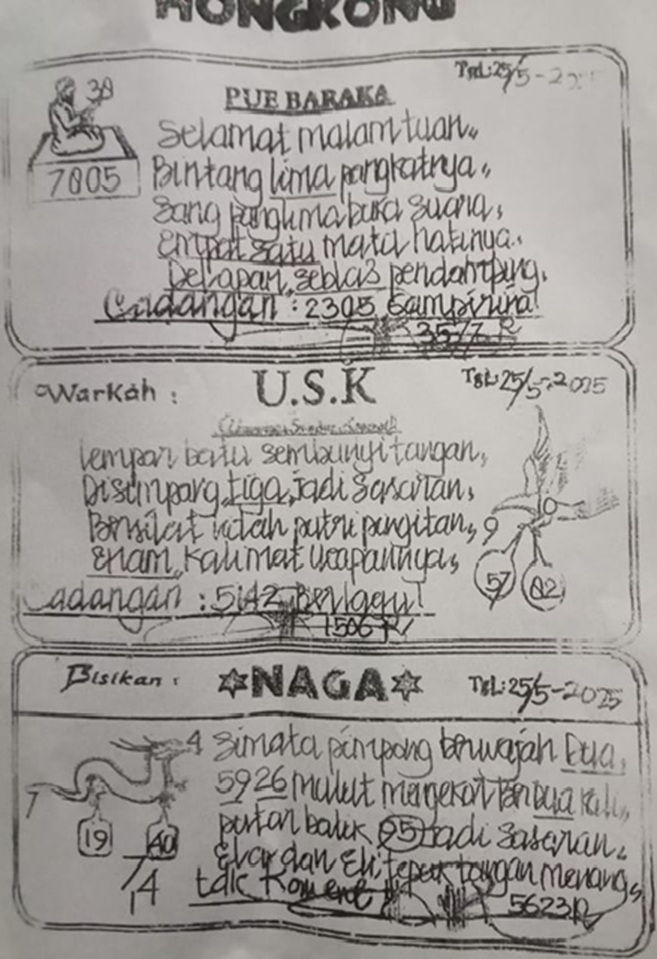 HONGKONG
Tgl: 25/5-2025
PUE BARAKA
38
7005
Selamat malam tuan,,
Bintang lima pangkatnya,,
Sang panglima buka suara,
Empat satu mata hatinya,
Delapan, seblas pendamping,
Cadangan : 2305
3577 R
Warkah :
U.S.K
Tgl: 25/5-2025
lempar batu sembunyi tangan,
Disimpang tiga jadi sasaran,
Bersilat lidah putri pingitan,
Enam, kalimat ucapannya,
9
57
02
Cadangan : 5142
1506 R
Bisikan :
NAGA
Tgl: 25/5-2025
4
Simata pimpong berwajah Dua,
5926 mulut mengekor
putar balik 95 jadi sasaran,
Ekor dan
tepuk tangan menang,
7
19
40
7/14
5623 R